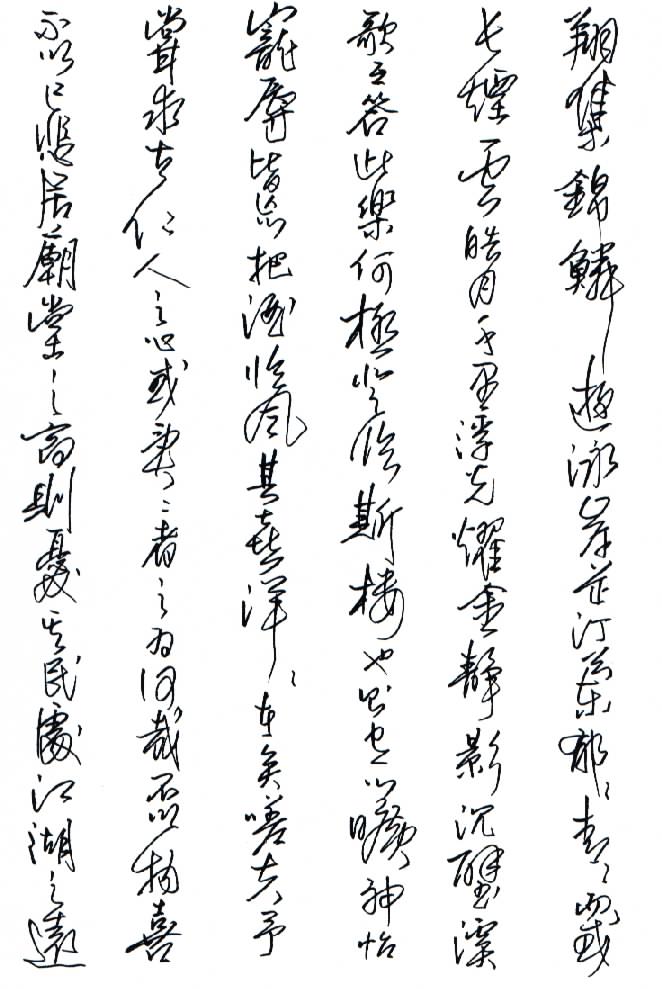 翔集錦鱗遊泳岸芷汀蘭郁〻青〻而或
長煙一空皓月千里浮光耀金靜影沉璧漁
歌互答此樂何極登臨斯樓也則有心曠神怡
寵辱皆忘把酒臨風其喜洋〻者矣嗟夫予
嘗求古仁人之心或異二者之為何哉不以物喜
不以己悲居廟堂之高則憂其民處江湖之遠